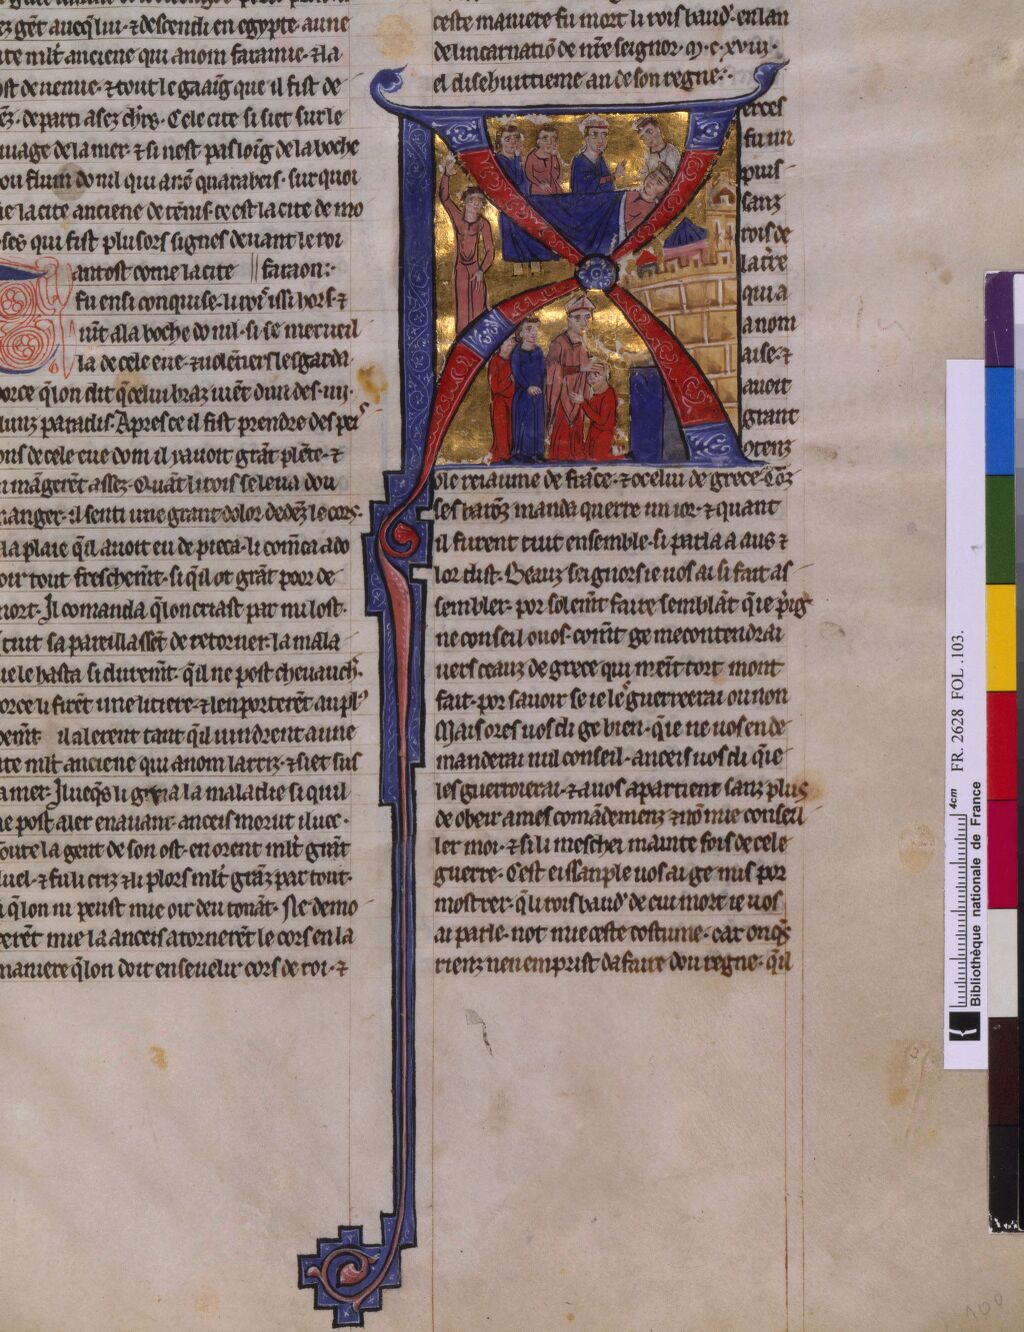 gẽt aucq̃ lui · ⁊ descendi en egypte a une
ite mlt̃ anciene qui a nom faramie · ⁊ la
ost de nenue · ⁊ tout le gaaig̃ que il fist de
departi a sez chrs̃ · Cele cite si siet sur le
iuage de la mer · ⁊ si nest pas loig̃ de la boche
ou flum do nil qui a nõ quarabeis · sur quoi
ie la cite anciene de tenis · ce est la cite de mo
ses qui fist plusors signes deuant le roi
antost come la cite faraon :·
fu ensi conquise · li rois issi hors · ⁊
uit̃ a la boche do nil · si se merueil
la de cele eue · ⁊ uolẽtiers les garda ·
porce q̃ lon dit q̃ celui braz uiẽt dun des · iiij ·
luns paradis · Apres ce il fist prendre des pei
ons de cele eue dom il y auoit grãt plẽte · ⁊
mãgerẽt assez · Quãt li rois se leua dou
manger · il senti une grant dolor dedẽz le cors ·
la plaie q̃l auoit eu de pieca · li com̃ca a do
oir tout freschemẽt · si q̃l ot grãt poor de
mort · Il comanda q̃ lon criast par mi lost ·
tuit sa pareillassẽt de retorner · la mala
ie le hasta si duremẽt · q̃l ne post cheuauch̃ ·
porce li firẽt une litiere · ⁊ len porterẽt au pl
il alerent tant q̃l uindrent a une
ite mlt̃ anciene qui a nom larriz · ⁊ siet sus
la mer · Iluecq̃s li greua la maladie si quil
ne post aler en auant · anceis morut iluec ·
Toute la gent de son ost · en orent mlt̃ grãt
duel · ⁊ fu li criz ⁊ li plors mlt̃ grãz par tout ·
q̃ lon ni peust mie oir deu tonãt · Ne demo
rerẽt mie la anceis atornerẽt le cors en la
maniere q̃ lon doit enseuelir cors de roi · ⁊
ceste maniere fu mort li rois baud' · en lan
de lincarnatiõ de nr̃e seignor · m · c · xviij ·
el disehuittieme an de son regne :·
erces
fu un
puis
sanz
rois de
la tire
qui a
a nom
aise · ⁊
auoit
grant
ole reiaume de frãce · ⁊ o celui de grece · Toz
ses barõz manda querre un ior · ⁊ quant
il furent tuit ensemble · si parla a aus ⁊
lor dist · Beauz seignors ie uos ai si fait as
sembler · por solemt̃ faire semblãt q̃ ie prẽg
ne conseil o uos · comẽt ge me contendrai
uers ceauz de grece qui meĩt tort mont
fait · por sauoir se ie les guerreerai ou non
Mais ores uos di ge bien · q̃ ie ne uos en de
manderai nul conseil · anceis uos di q̃ ie
les guerroierai · ⁊ a uos apartient sanz plus
de obeir a mes comãdemenz ⁊ nõ mie conseil
ler moi · ⁊ si li meschei mainte fois de cele
guerre · Cest eissanple uos ai ge mis por
mostrer · q̃ li rois baud' de cui mort ie uos
ai parle · not mie ceste costume · car onq̃s
rienz nen emprist da faire dou regne · q̃l
4cm
FR. 2628 FOL .103.
Bibliothèque nationale de France